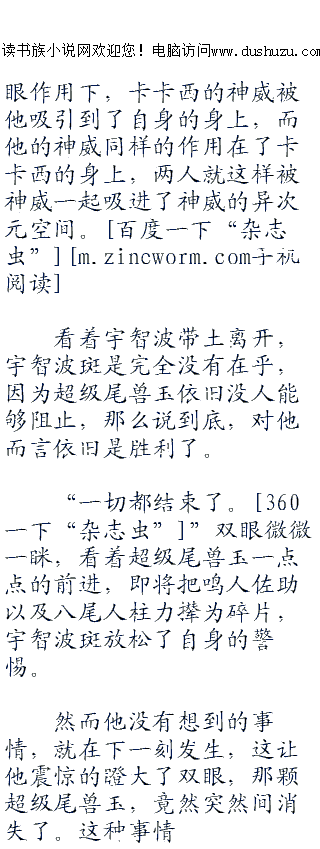 读书族小说网欢迎您！电脑访问www.dushuzu.com
眼作用下，卡卡西的神威被
他吸引到了自身的身上，而
他的神威同样的作用在了卡
卡西的身上，两人就这样被
神威一起吸进了神威的异次
元空间。[百度一下“杂志
虫”][m.zincworm.com手机
阅读]
看着宇智波带土离开，
宇智波斑是完全没有在乎，
因为超级尾兽玉依旧没人能
够阻止，那么说到底，对他
而言依旧是胜利了。
“一切都结束了。[360
一下“杂志虫”]”双眼微微
一眯，看着超级尾兽玉一点
点的前进，即将把鸣人佐助
以及八尾人柱力撵为碎片，
宇智波斑放松了自身的警
惕。
然而他没有想到的事
情，就在下一刻发生，这让
他震惊的瞪大了双眼，那颗
超级尾兽玉，竟然突然间消
失了。这种事情